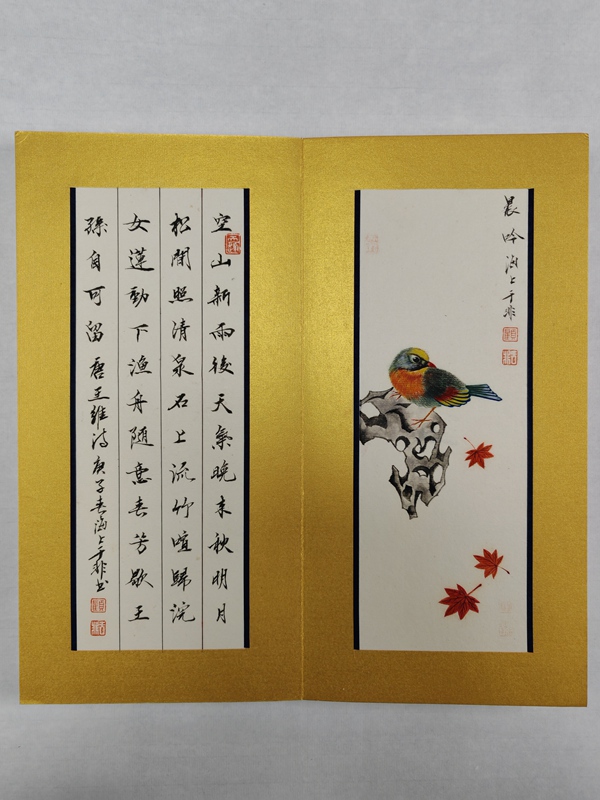 晨吟海上于非
空山新雨後天氣晚来秋明月
松間照清泉石上流竹喧歸浣
女蓮動下漁舟隨意春芳歇王
孫自可留唐王維诗庚子春海上于非书